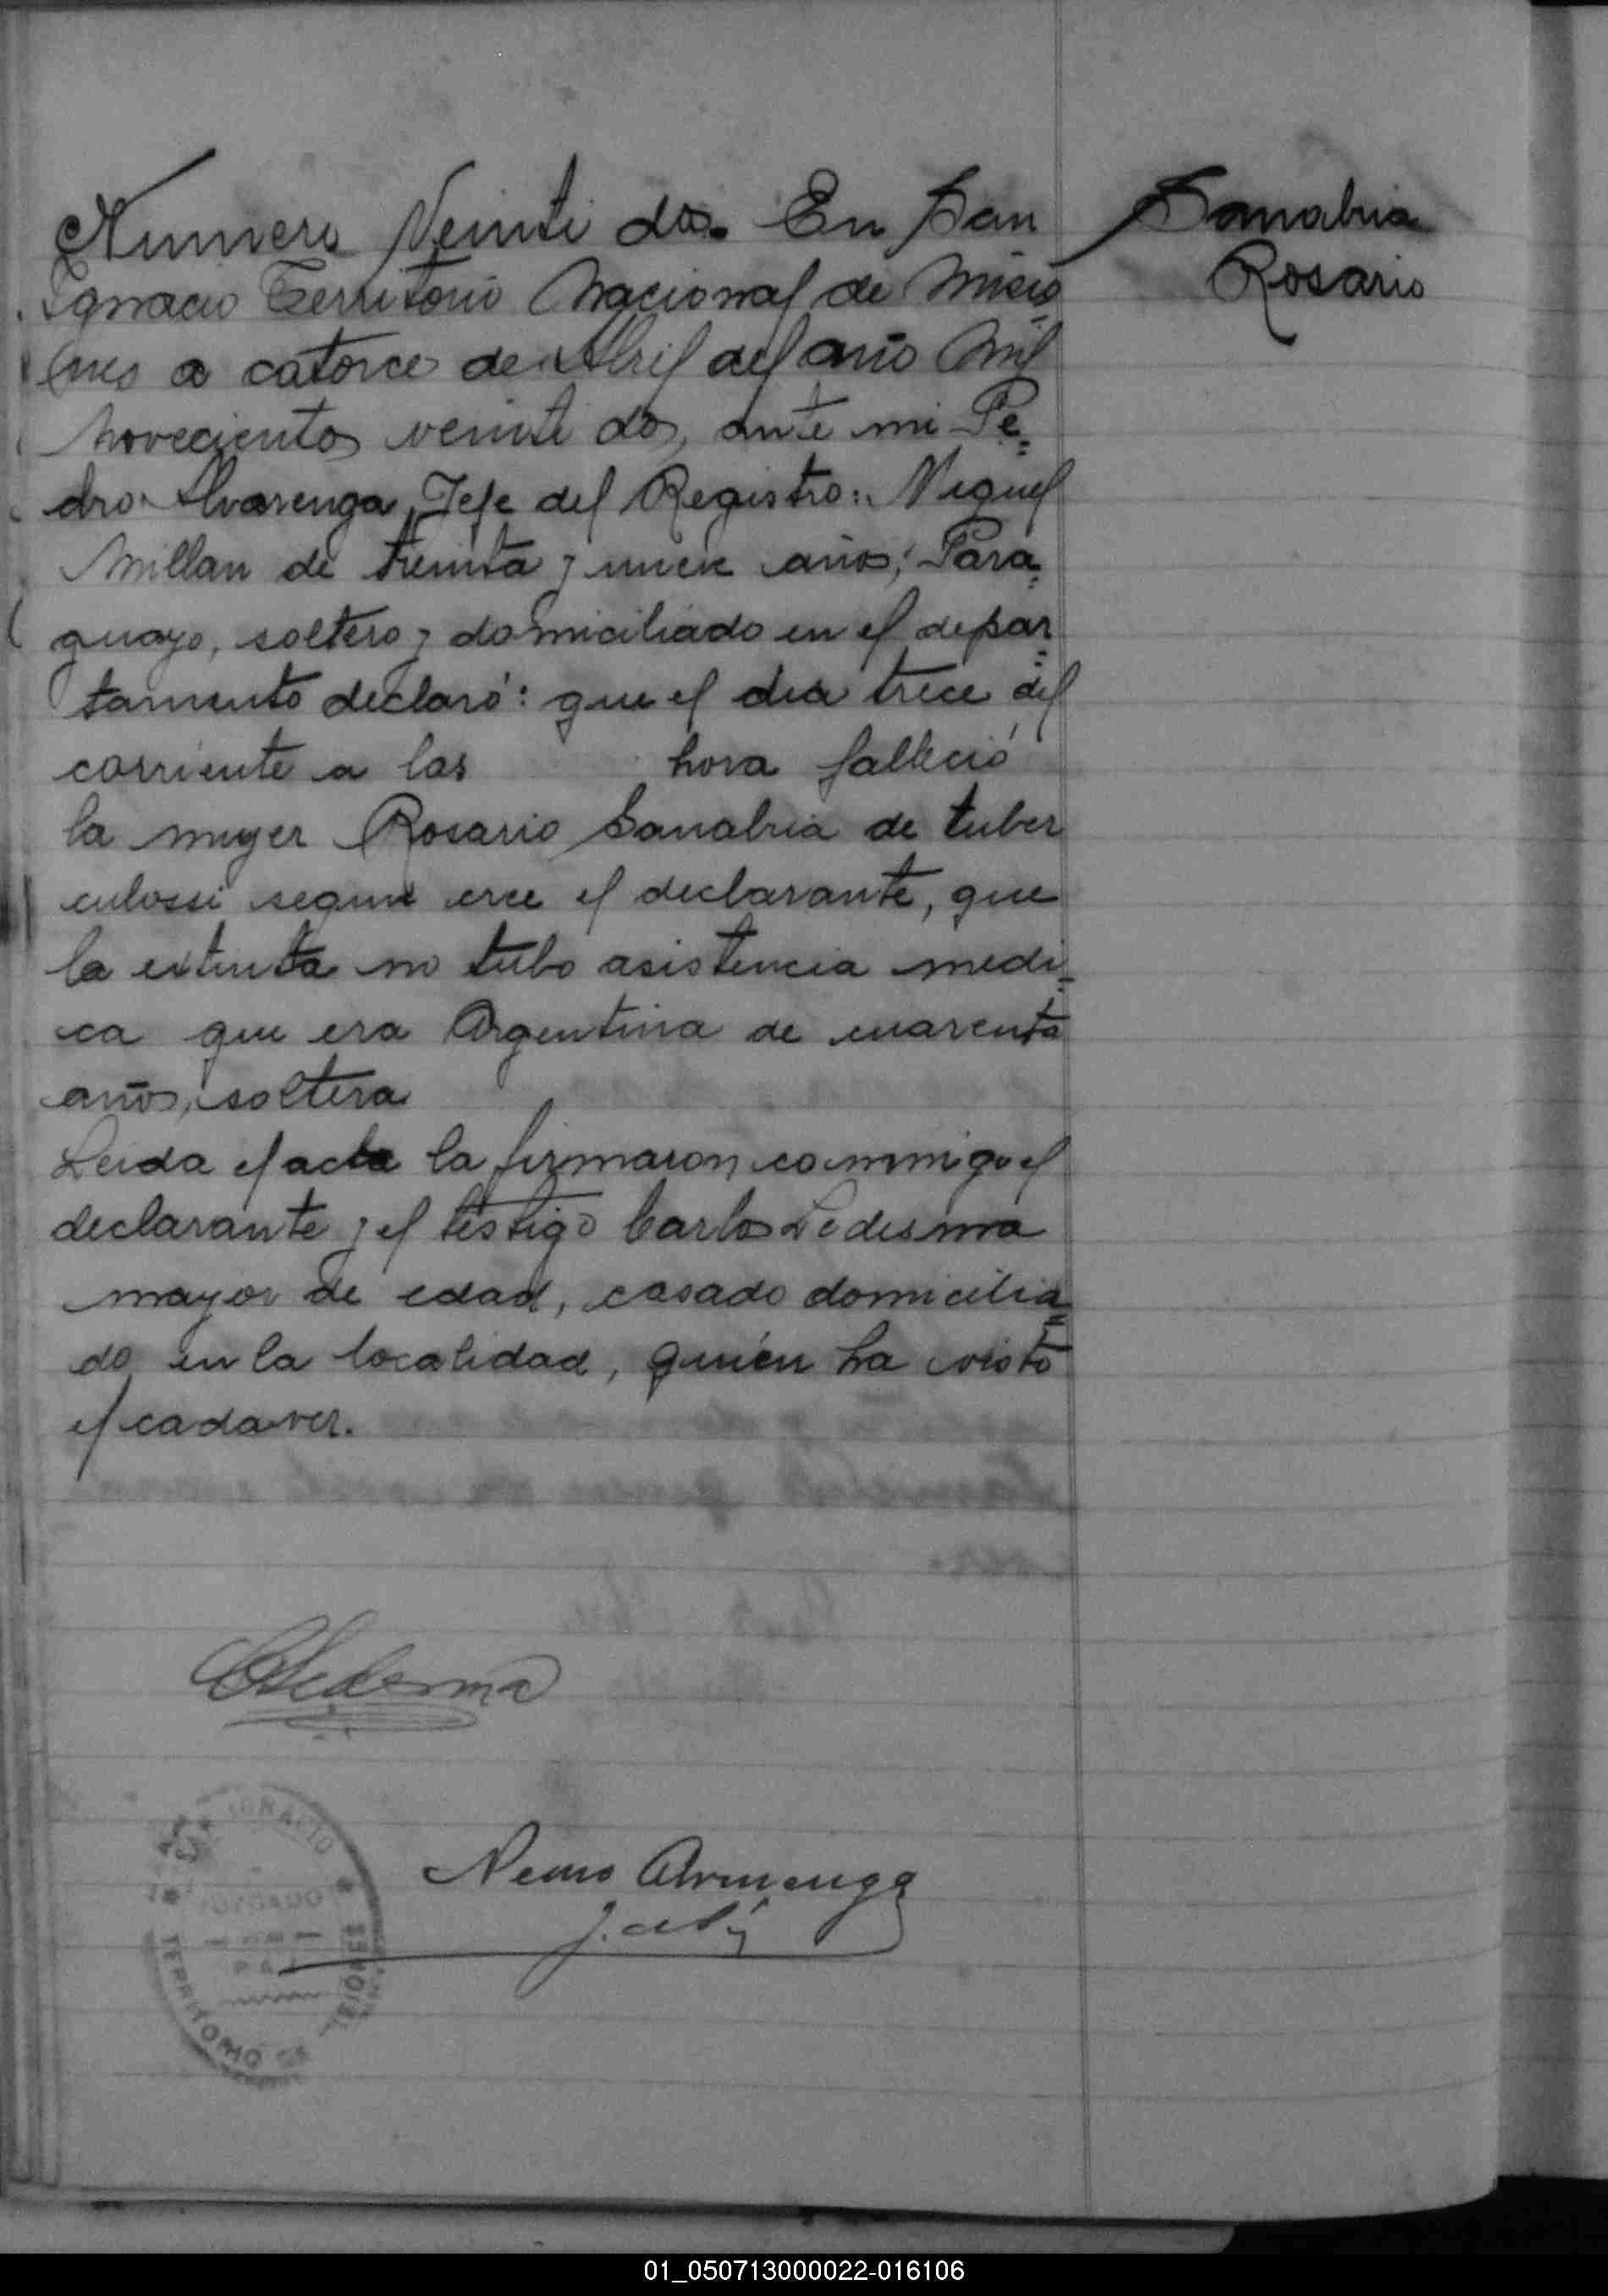 Numero Veinti dos. En San
Ignacio Territorio Nacional de Misio
nes a catorce de Abril del año mil
novecientos veinti dos, ante mi Pe=
dro Alvarenga, Jefe del Registro: Miguel
Millan de treinta y nueve años, Para=
guayo, soltero y domiciliado en el depar=
tamento declaró: que el dia trece del
corriente a las hora falleció
la muger Rosario Sanabria de tuber
culossi segun cree el declarante, que
la extinta no tubo asistencia medi=
ca que era Argentina de cuarenta
años, soltera
Leida el acta la firmaron conmigo el
declarante y el testigo Carlos Ledesma
mayor de edad, casado domicilia=
do en la localidad, quien ha visto
el cadaver.
Sanabria
Rosario
CLedesma
SAN IGNACIO
JUZGADO
DE
PAZ
TERRITORIO DE MISIONES
01_050713000022-016106